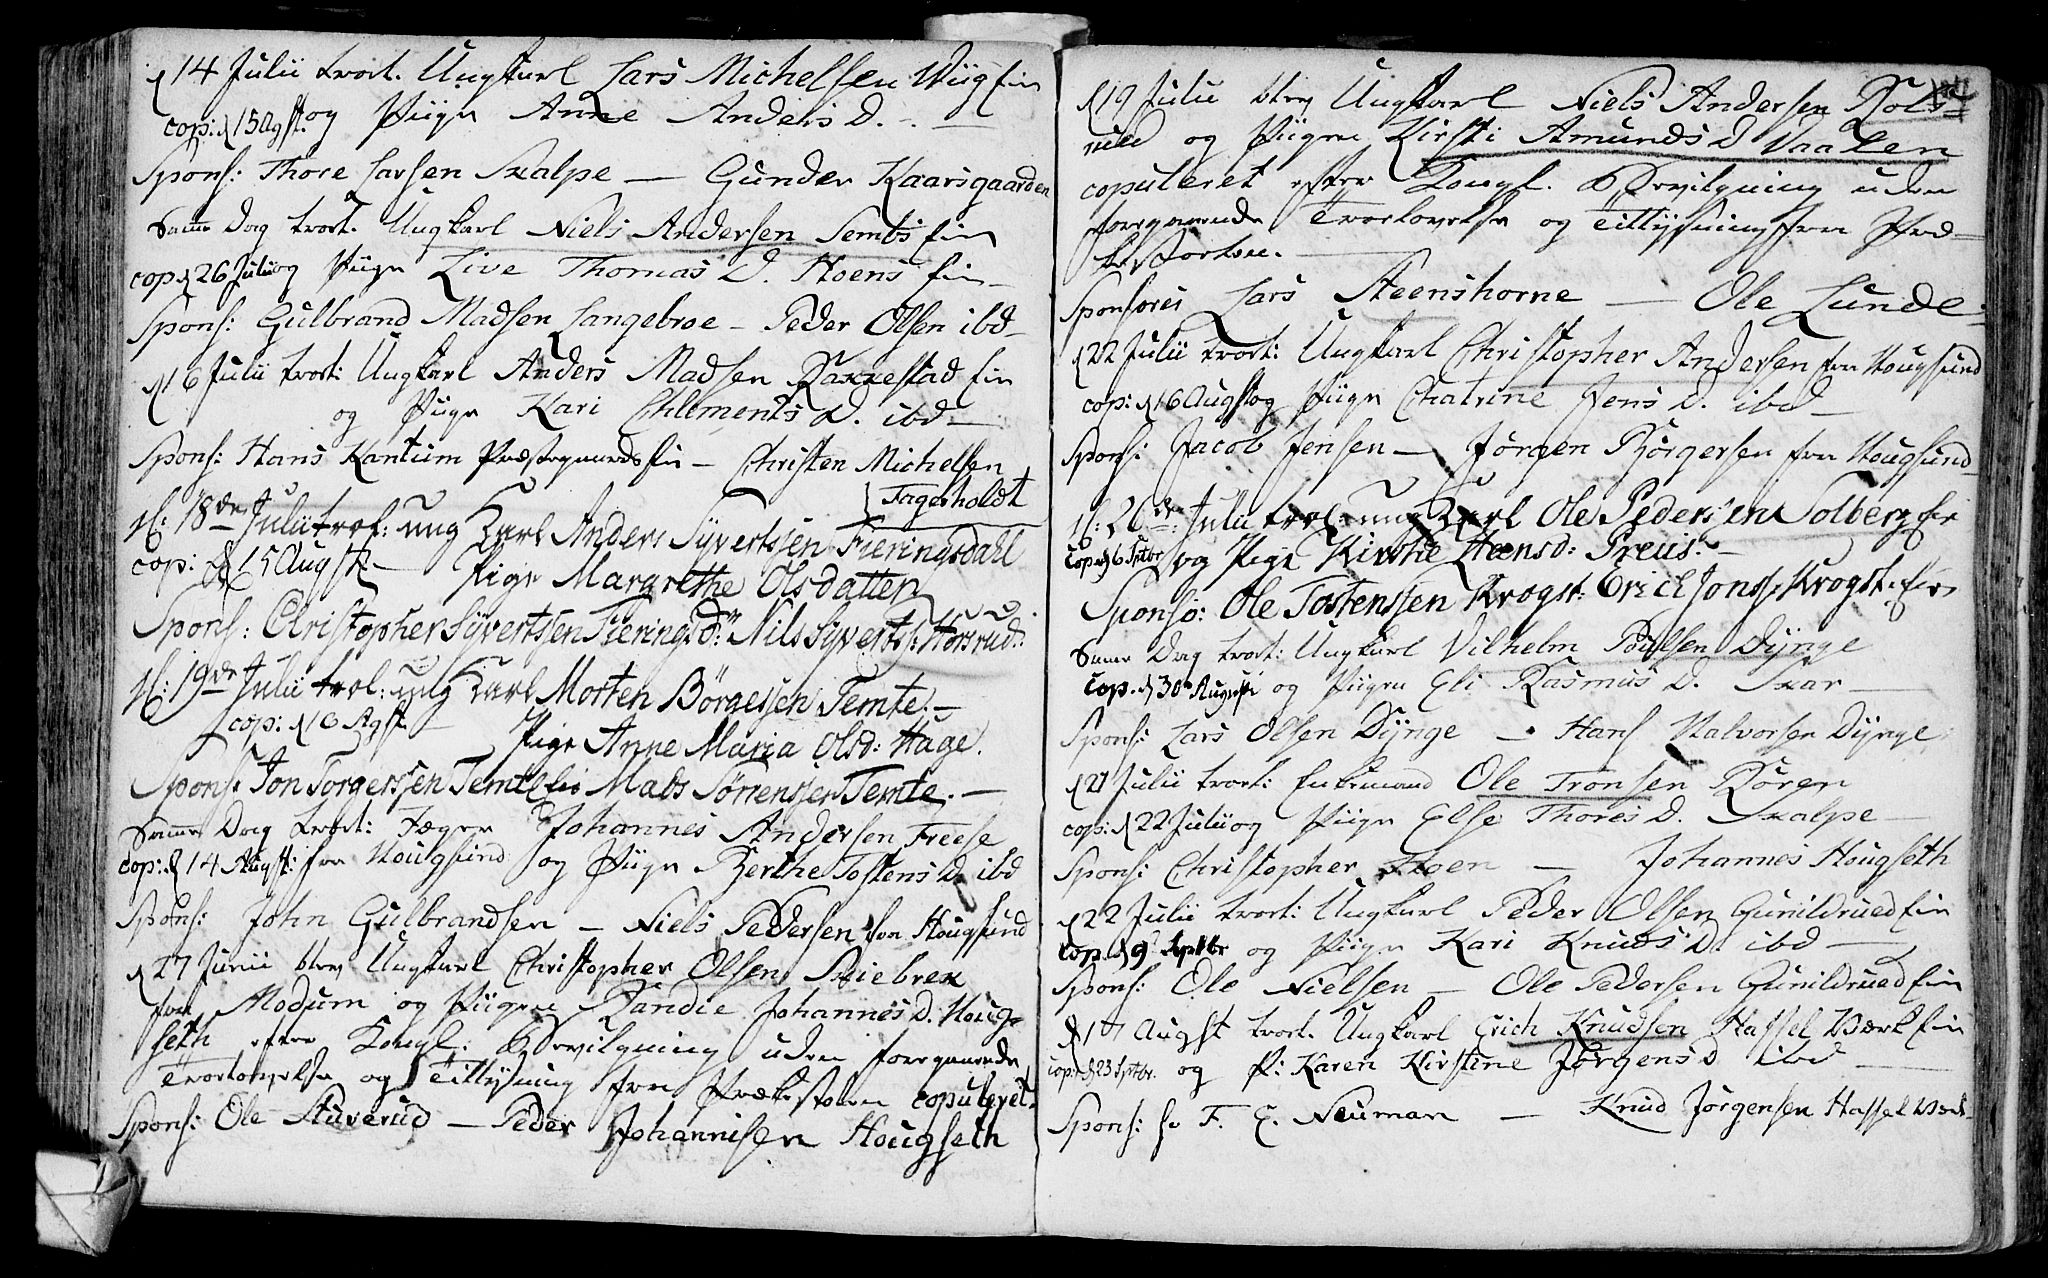 d 14 Julii trol. Ungkarl Lars Michelsen Wiig Eie
cop: d 15 Agst. og Piige Anne Anders D. —
Spons: Thore Larsen Skalpe — Gunder Kaarsgaarden
Samme Dag trol. Ungkarl Niels Andersen Sembs Eie
cop d 26 Julii og Piige Live Thomas D. Hoens Eie —
Spons: Gulbrand Madsen Langebroe — Peder Olsen ibd —
d 16 Julii trol: Ungkarl Anders Madsen Rakkestad Eie
og Piige Kari Chlements D. ibd —
Spons: Hans Kantum Præstegaards Eie — Christen Michelsen
Fagerholdt
d: 18de Julii trol: ung Karl Anders Syvertsen Fieringsdahl
cop: d 15 Augst: — Pige Margrethe Olsdatter
Spons: Christopher Syvertssen Fieringsd: Nils Syvertss: Korsrud:
d: 19de Julii trol: ung Karl Morten Börgessen Temte. —
cop: d 16 Agst. — Pige Anne Maria Olsd: Hage.
Spons: Jon Torgerssen Temte Eie Mads Sörrenssen Temte. —
Samme Dag trol: Jæger Johannes Andersen Freese
cop: d 14 Augst: fra Hougsund og Piige Berthe Tostens D. ibd
Spons: John Gulbrandsen — Niels Pedersen fra Hougsund
d 27 Junii blev Ungkarl Christopher Olsen Skiebrek
fra Modum og Piigen Randie Johannes D. Houg-
seth efter Kongl. Bevilgning uden foregaaende
Trolovelse og Tillysning fra Prækestolen copuleret.
Spons: Ole Stuverud — Peder Johannisen Hougseth
d 19 Julii blev Ungkarl Niels Andersen Kols-
rud og Piigen Kirsti Amunds D Vaaken
copuleret efter Kongl. Bevilgning uden
foregaaende Trolovelse og Tillysning fra Præ-
kestolen. —
Sponsores Lars Steenshorne — Ole Lunde.
d 22 Julii trol: Ungkarl Christopher Andersen fra Hougsund
cop: d 16 Augst og Piige Chatrine Jens D. ibd —
Spons: Jacob Jensen — Jörgen Börgersen fra Hougsund —
d: 20de: Julii trol: ung Karl Ole Pederssen Solberg Eie
cop d 6 Sptbr og Pige Kirsthe Hansd: Preüs. —
Sponso: Ole Tostenssen Krogst: Erich Jonss: Krogst. Eie
Samme Dag trol: Ungkarl Vilhelm Poulsen Dynge
cop. d 30te Augusti og Piigen Eli Rasmus D. Skar —
Spons: Lars Olsen Dynge — Hans Halvorsen Dynge
d 21 Julii trol: Enkemand Ole Tronsen Boren
cop: d 22 Julii og Piige Else Thores D. Skalpe —
Spons: Christopher Hoen — Johannes Hougseth
d 22 Julii trol: Ungkarl Peder Olsen Gunildrued Eie
cop d 9 Septbr og Piigen Kari Knuds D. ibd —
Spons: Ole Nielsen — Ole Pedersen Gunildrued Eie
d 17 Augst trol. Ungkarl Erich Knudsen Hassel Værk Eie
cop: d 23 Sptbr. og P: Karen Kirstine Jörgens D ibd —
Spons: hr F. C. Neuman — Knud Jörgensen Hassel Værk